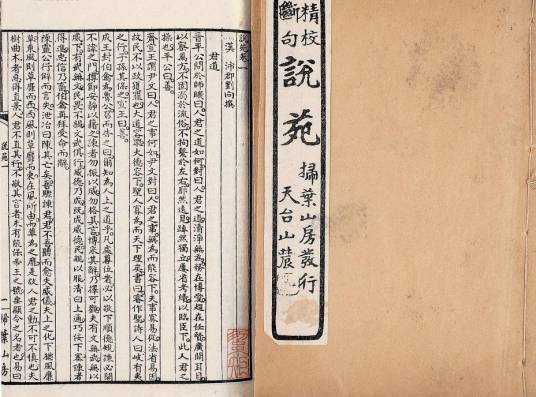 精校
斷句
說苑
掃葉山房發行
天台山農
說苑卷一
漢沛郡劉向撰
君道
晉平公問於師曠曰人君之道如何對曰人君之道清淨無為務在博愛趨在任賢廣開耳目
以察萬方不固溺於流俗不拘繫於左右廓然遠見踔然獨立屢省考績以臨臣下此人君之
操也平公曰善
齊宣王謂尹文曰人君之事何如尹文對曰人君之事無為而能容下夫事寡易從法省易因
故民不以政獲罪也大道容衆大德容下聖人寡為而天下理矣書曰睿作聖詩人曰岐有夷
之行子孫其保之宣王曰善
成王封伯禽為魯公召而告之曰爾知為人上之道乎凡處尊位者必以敬下順德規諫必開
不諱之門撙節安靜以藉之諫者勿振以威勿格其言博采其辭乃擇可觀夫有文無武無以
威下有武無文民畏不親文武俱行威德乃成既成威德民親以服清白上通巧佞下塞諫者
得進忠信乃畜伯禽再拜受命而辭
陳靈公行僻而言失泄冶曰陳其亡矣吾驟諫君君不吾聽而愈失威儀夫上之化下猶風靡
草東風則草靡而西西風則草靡而東在風所由而草為之靡是故人君之動不可不慎也夫
樹曲木者惡得直景人君不直其行不敬其言者未有能保帝王之號垂顯令之名者也易曰
說苑
一
掃葉山房